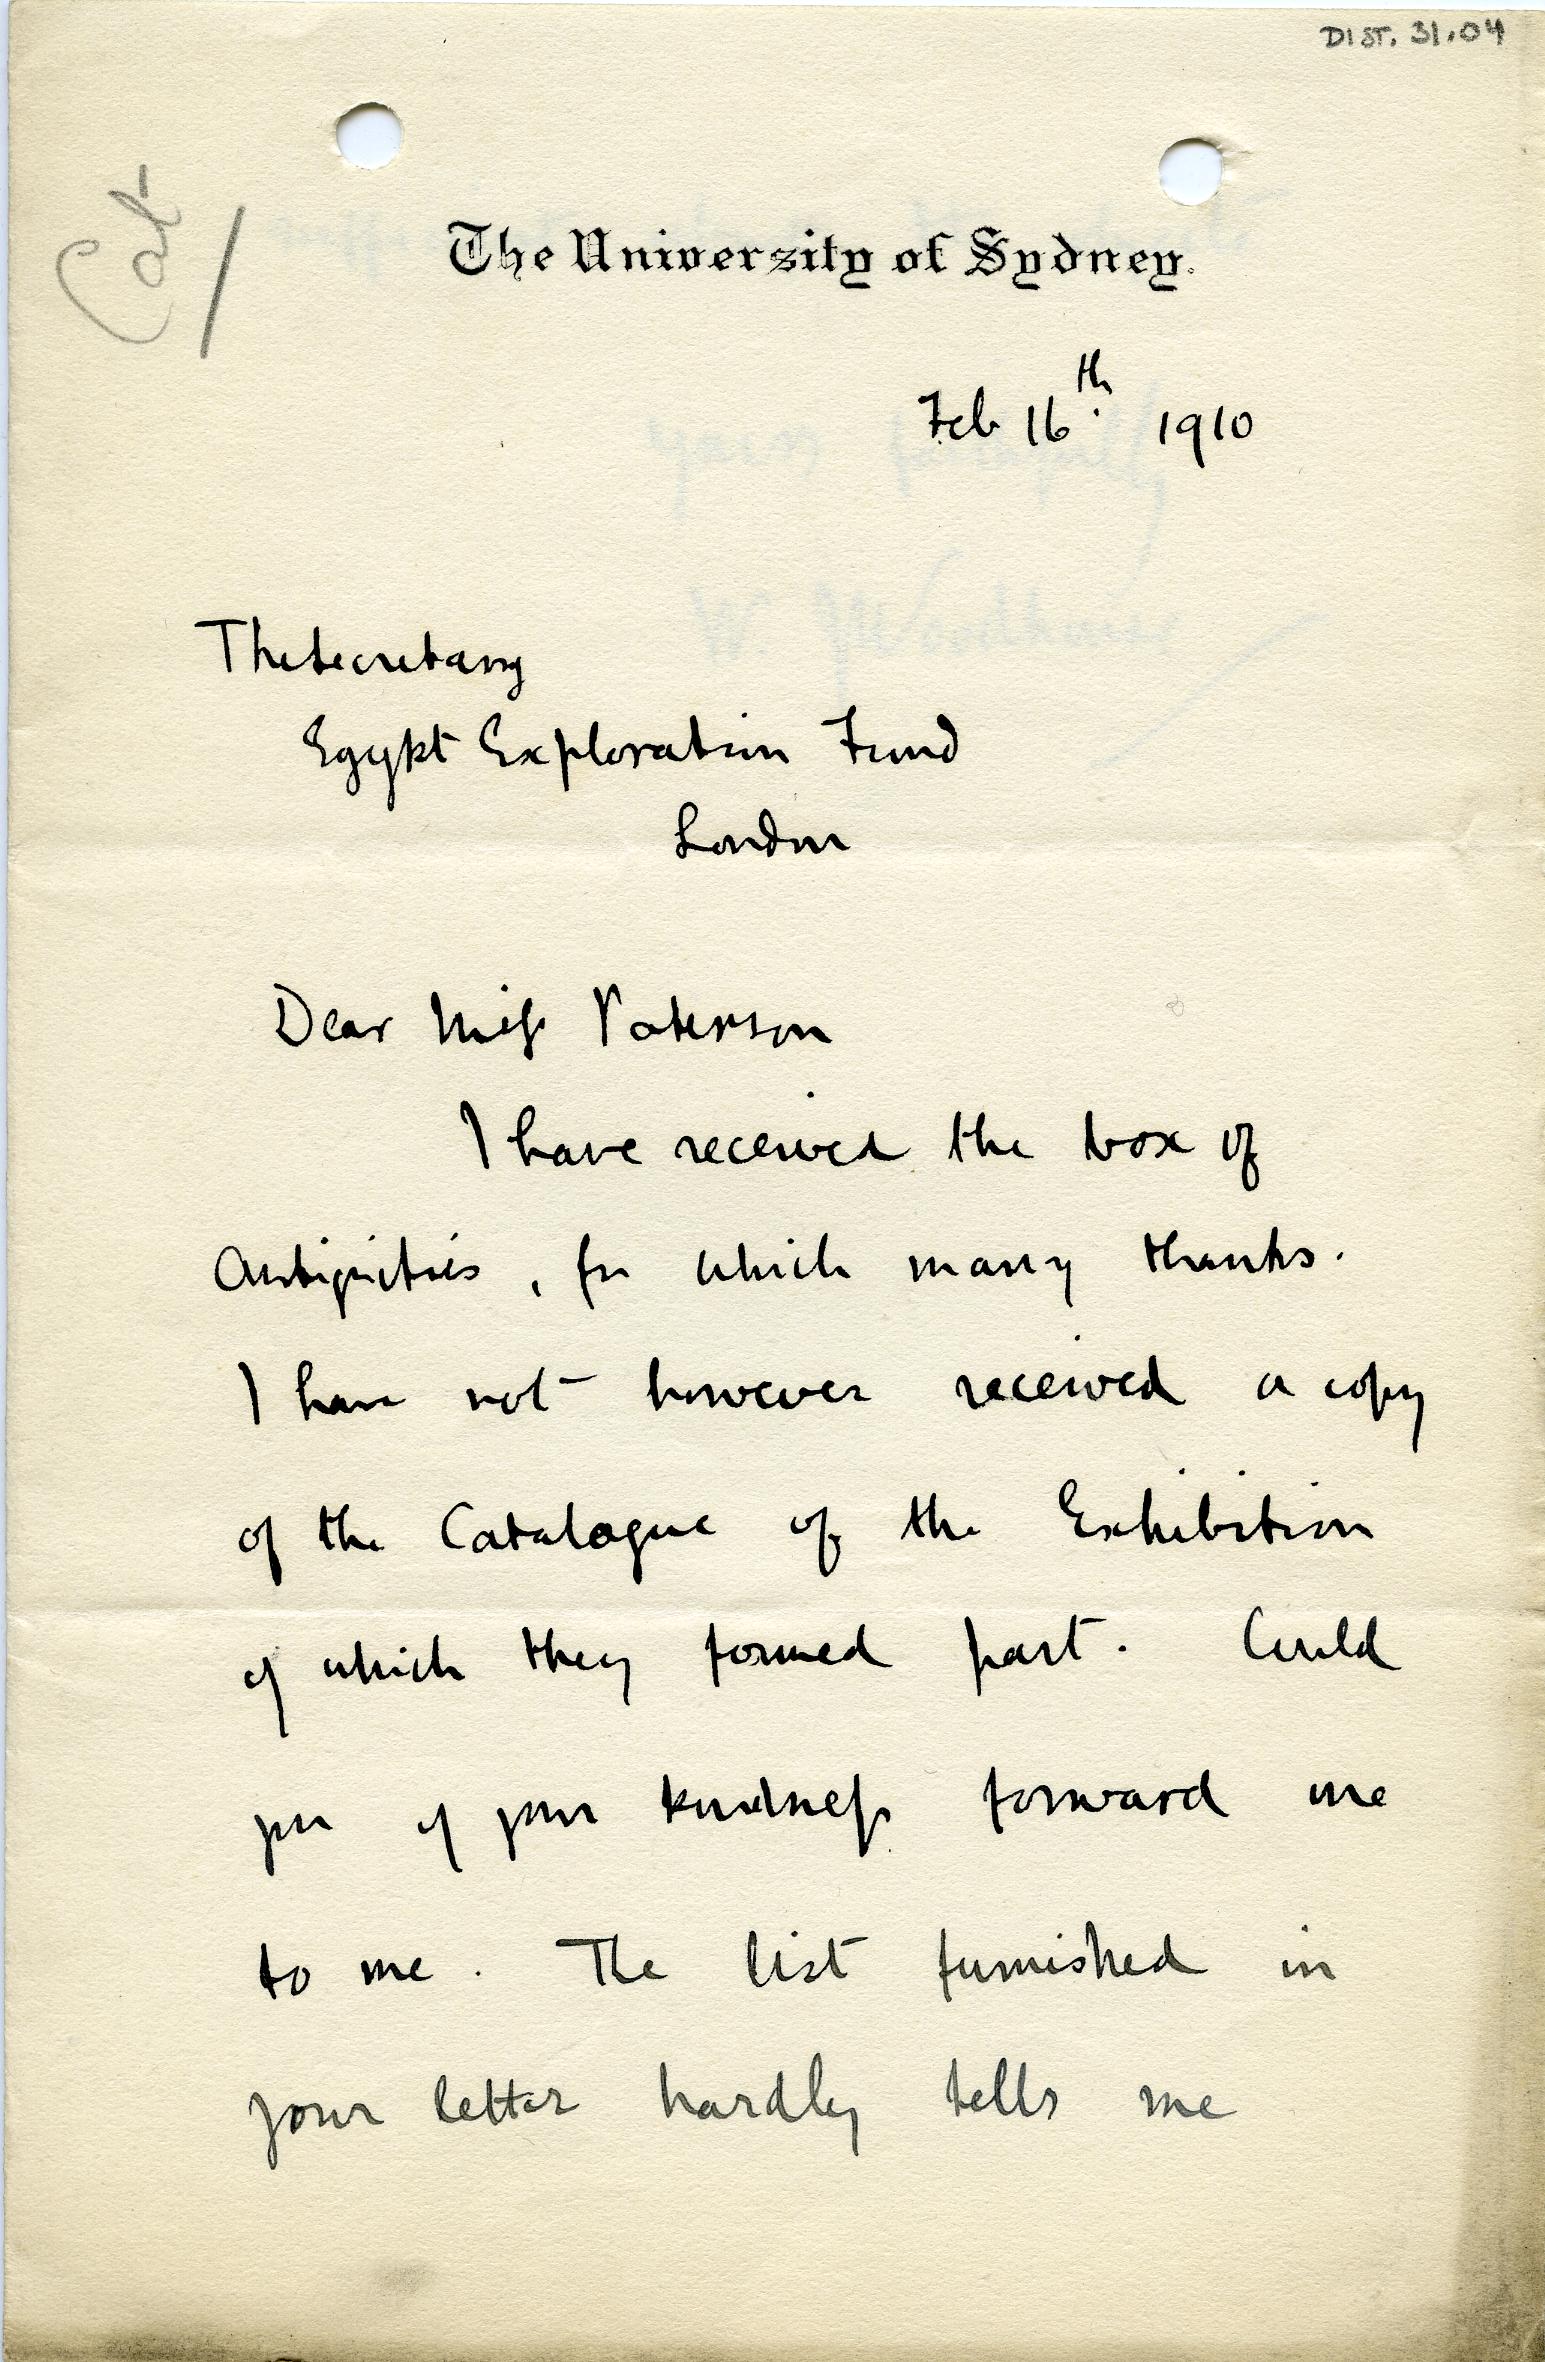 DIST. 31.04
Cat
The University of Sydney.
Feb 16th 1910
The Secretary
Egypt Exploration Fund
London
Dear Miss Paterson
I have received the box of
Antiquities, for which many thanks.
I have not however received a copy
of the Catalogue of the Exhibition
of which they formed part. Could
you of your kindness forward one
to me. The list furnished in
your letter hardly tells me